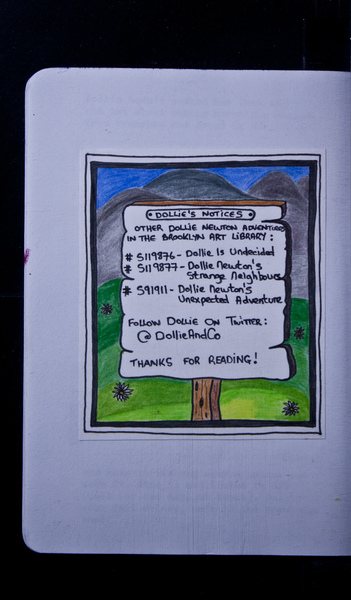 • DOLLIE'S NOTICES •
OTHER DOLLIE NEWTON ADVENTURES
IN THE BROOKLYN ART LIBRARY:
# S119876 - Dollie Is Undecided
# S119877 - Dollie Newton's
Strange Neighbours
# S91911 - Dollie Newton's
Unexpected Adventure
FOLLOW DOLLIE ON TWITTER:
@DollieAndCo
THANKS FOR READING!